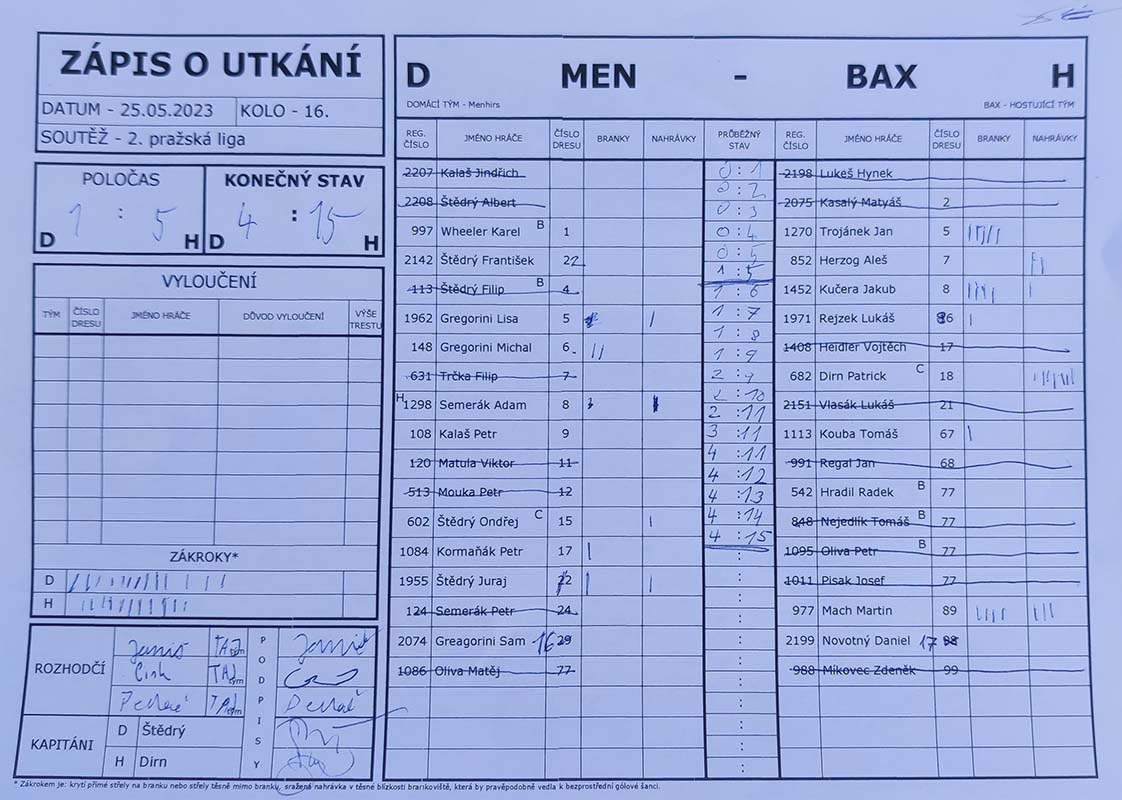 ZÁPIS O UTKÁNÍ
DATUM - 25.05.2023 KOLO - 16.
SOUTĚŽ - 2. pražská liga
POLOČAS KONEČNÝ STAV
1 : 5 4 : 15
D H D H
VYLOUČENÍ
TÝM ČÍSLO DRESU JMÉNO HRÁČE DŮVOD VYLOUČENÍ VÝŠE TRESTU
ZÁKROKY*
D
H
ROZHODČÍ
PODPISY
KAPITÁNI
D Štědrý
H Dirn
D MEN - BAX H
DOMÁCÍ TÝM - Menhirs BAX - HOSTUJÍCÍ TÝM
REG. ČÍSLO JMÉNO HRÁČE ČÍSLO DRESU BRANKY NAHRÁVKY PRŮBĚŽNÝ STAV REG. ČÍSLO JMÉNO HRÁČE ČÍSLO DRESU BRANKY NAHRÁVKY
2207 Kalaš Jindřich
2208 Štědrý Albert
997 Wheeler Karel B 1
2142 Štědrý František 22
113 Štědrý Filip B 4
1962 Gregorini Lisa 5
148 Gregorini Michal 6
631 Trčka Filip 7
H 1298 Semerák Adam 8
108 Kalaš Petr 9
120 Matula Viktor 11
513 Mouka Petr 12
602 Štědrý Ondřej C 15
1084 Kormaňák Petr 17
1955 Štědrý Juraj 22
124 Semerák Petr 24
2074 Greagorini Sam 16 29
1086 Oliva Matěj 77
0 : 1
0 : 2
0 : 3
0 : 4
0 : 5
1 : 5
1 : 6
1 : 7
1 : 8
1 : 9
2 : 9
2 : 10
2 : 11
3 : 11
4 : 11
4 : 12
4 : 13
4 : 14
4 : 15
2198 Lukeš Hynek
2075 Kasalý Matyáš 2
1270 Trojánek Jan 5
852 Herzog Aleš 7
1452 Kučera Jakub 8
1971 Rejzek Lukáš 6
1408 Heidler Vojtěch 17
682 Dirn Patrick C 18
2151 Vlasák Lukáš 21
1113 Kouba Tomáš 67
991 Regal Jan 68
542 Hradil Radek B 77
848 Nejedlík Tomáš B 77
1095 Oliva Petr B 77
1011 Pisak Josef 77
977 Mach Martin 89
2199 Novotný Daniel 17 98
988 Míkovec Zdeněk 99
* Zákrokem je: krytí přímé střely na branku nebo střely těsně mimo branku, sražená nahrávka v těsné blízkosti brankoviště, která by pravěpodobně vedla k bezprostřední gólové šanci.